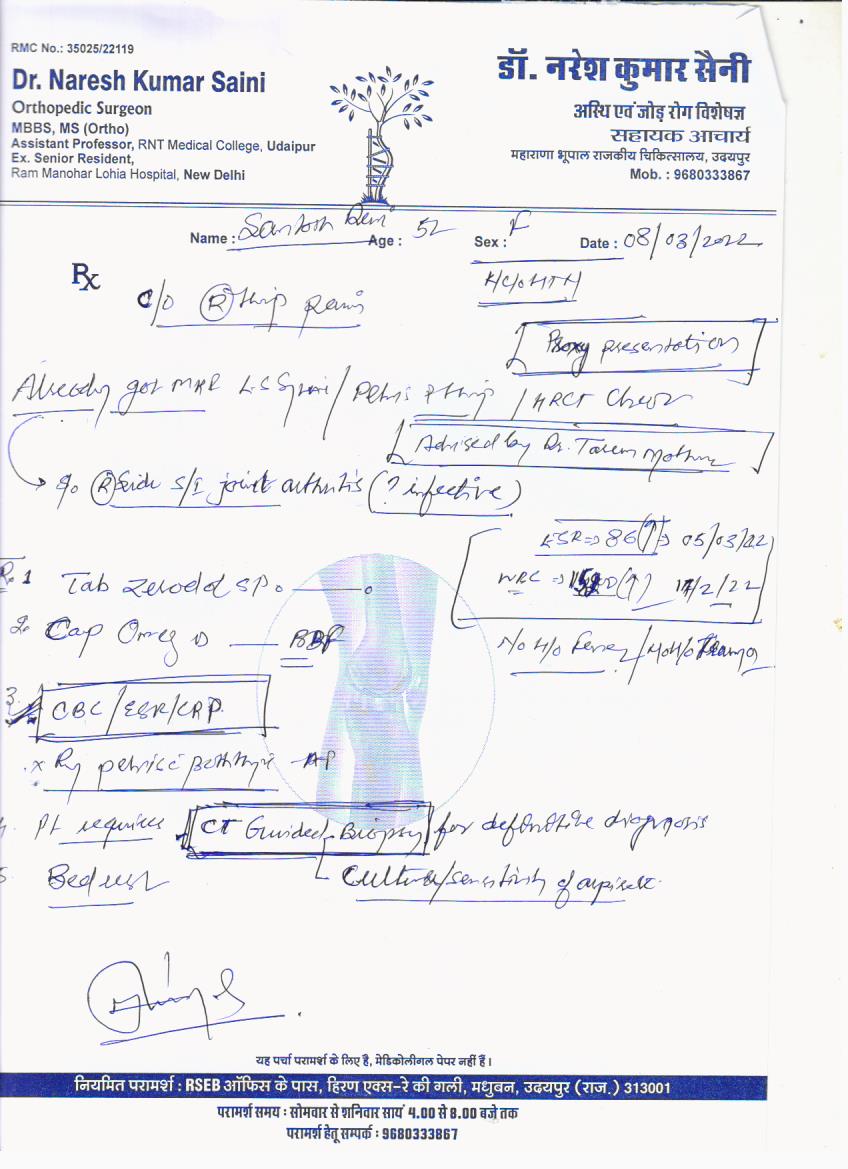 RMC No.: 35025/22119
Dr. Naresh Kumar Saini
Orthopedic Surgeon
MBBS, MS (Ortho)
Assistant Professor, RNT Medical College, Udaipur
Ex. Senior Resident,
Ram Manohar Lohia Hospital, New Delhi
डॉ. नरेश कुमार सैनी
अस्थि एवं जोड़ रोग विशेषज्ञ
सहायक आचार्य
महाराणा भूपाल राजकीय चिकित्सालय, उदयपुर
Mob. : 9680333867
Name : Santosh Devi Age : 52 Sex : F Date : 08/03/2022
Rx
K/C/O HTN
C/O (R) Hip pain
Proxy presentation
Already got MRI L-S Spine / Pelvis Hip / HRCT Chest
Advised by Dr.
S/o (R) Side S/I joint arthritis (? infective)
ESR => 86 (↑) => 05/03/22
(↑) 2/22
1 Tab Zerodol SP
2. Cap Omeg D BBF
No H/o Fever / No H/o Trauma
3. CBC/ESR/CRP
Both Hip AP
Pt requires CT Guided Biopsy for definitive diagnosis
Culture/sensitivity of aspirate
Bed rest
यह पर्चा परामर्श के लिए है, मेडिकोलीगल पेपर नहीं हैं ।
नियमित परामर्श : RSEB ऑफिस के पास, हिरण एक्स-रे की गली, मधुबन, उदयपुर (राज.) 313001
परामर्श समय : सोमवार से शनिवार सायं 4.00 से 8.00 बजे तक
परामर्श हेतु सम्पर्क : 9680333867